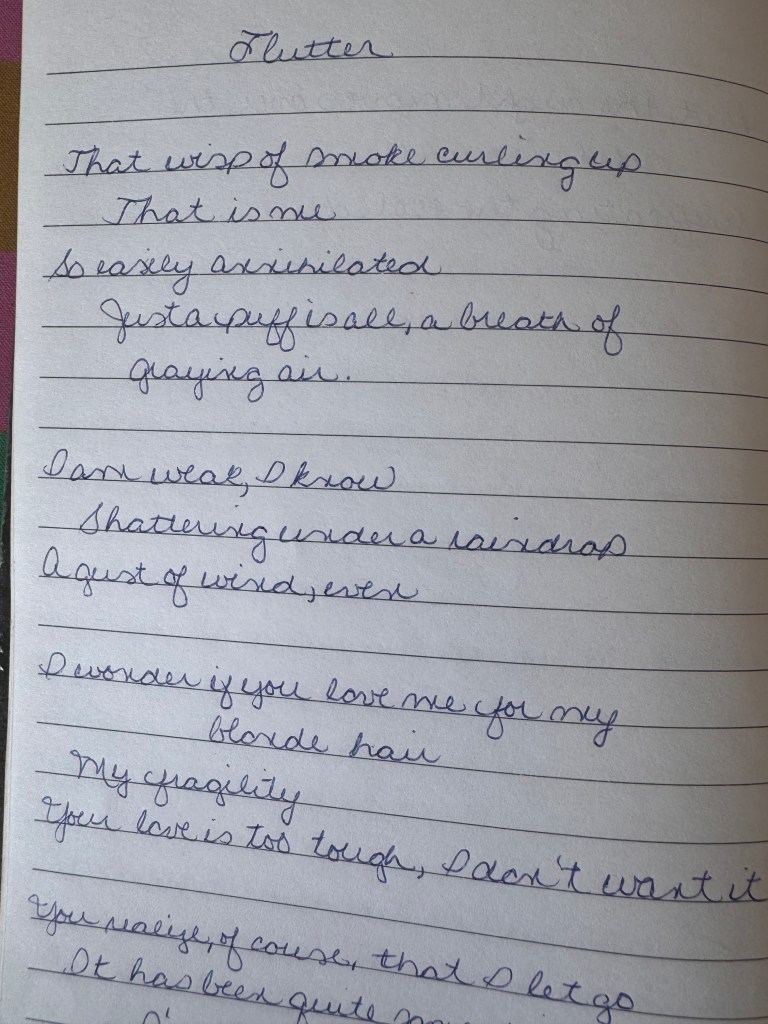 Flutter
That wisp of smoke curling up
That is me
So easily annihilated
Just a puff is all, a breath of
graying air.
I am weak, I know
Shattering under a raindrop
A gust of wind, even
I wonder if you love me for my
blonde hair
My fragility
Your love is too tough, I don't want it
You realize, of course, that I let go
It has been quite